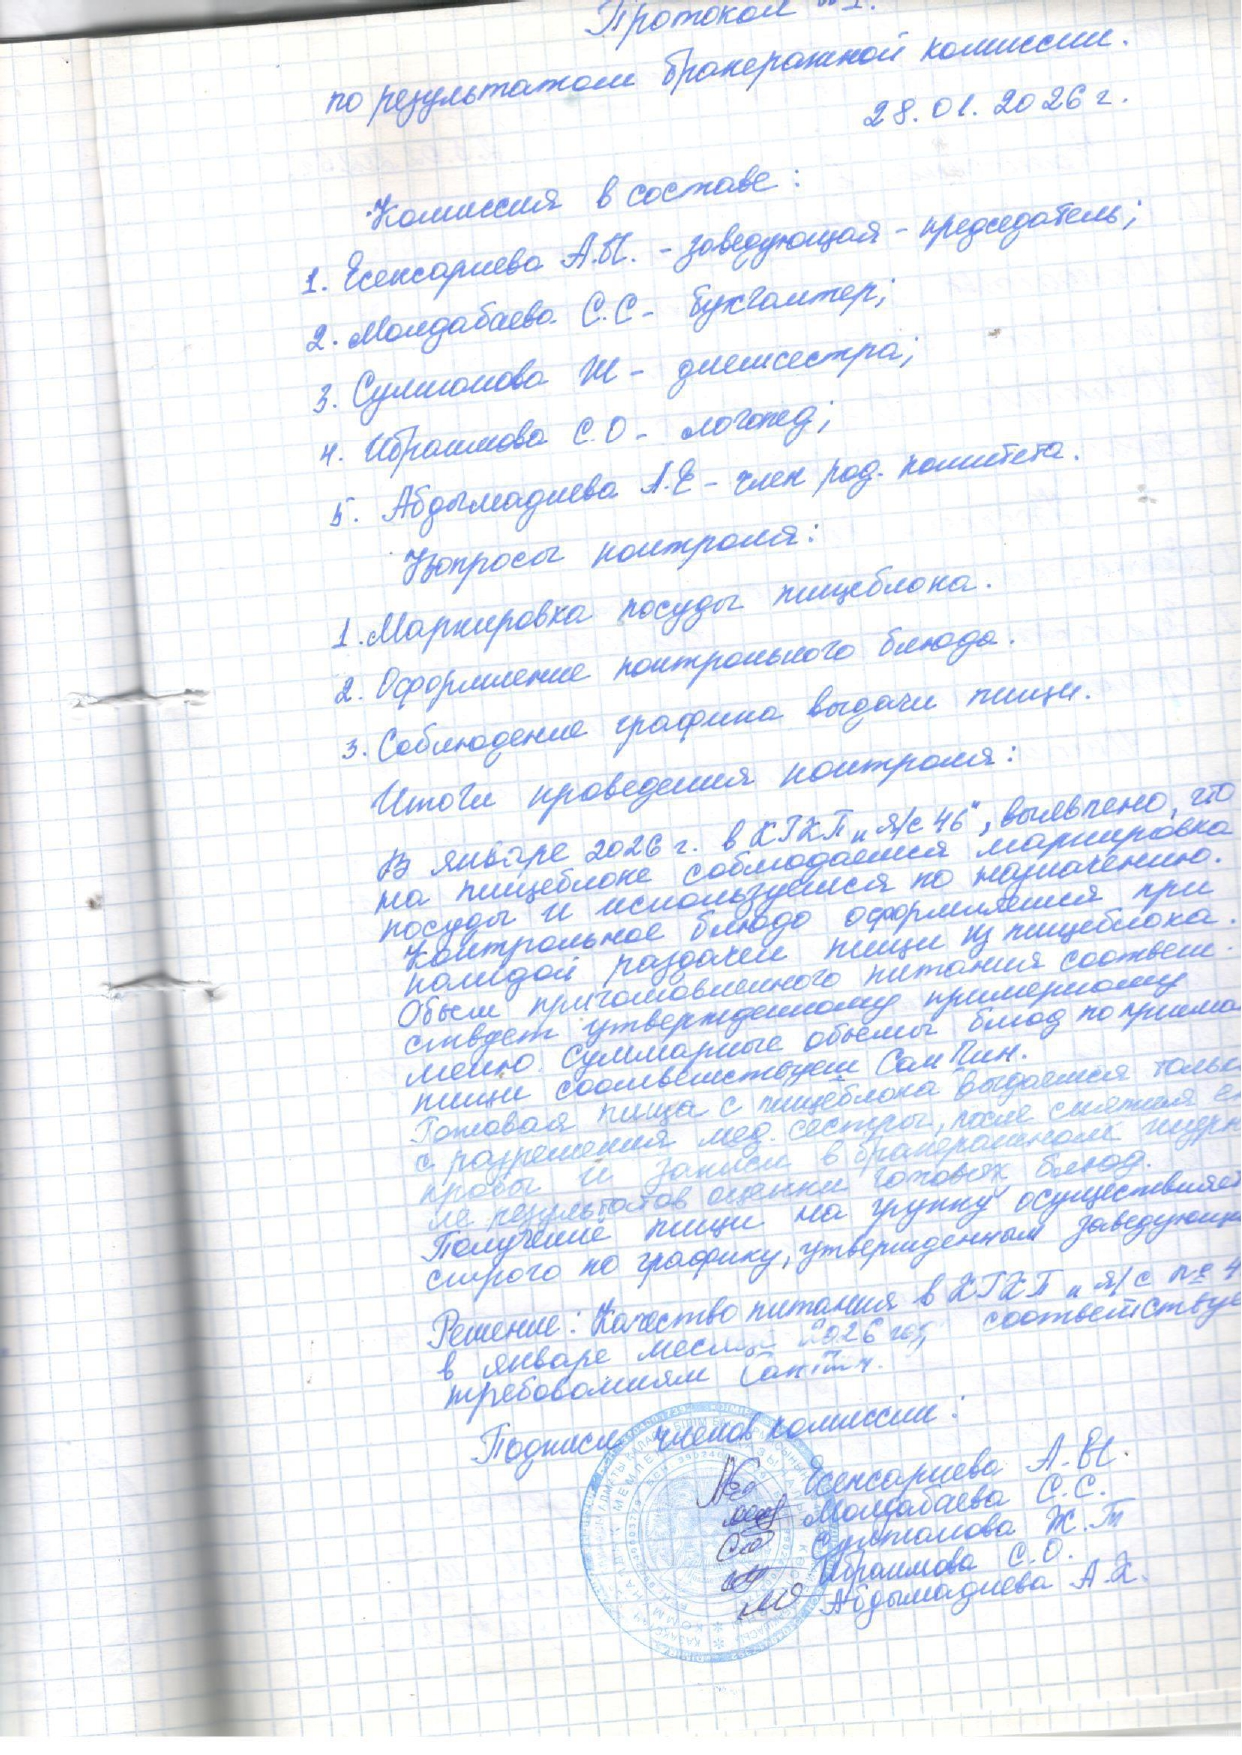 Протокол №1.
по результатам бракеражной комиссии.
28.01.2026 г.
Комиссия в составе:
1. Есенсариева А.Ы. - заведующая - председатель;
2. Молдабаева С.С - бухгалтер;
3. Султанова Ж - диетсестра;
4. Ибраимова С.О - логопед;
5. Абдымадиева А.Е - член род. комитета.
Вопросы контроля:
1. Маркировка посуды пищеблока.
2. Оформление контрольного блюда.
3. Соблюдение графика выдачи пищи.
Итоги проведения контроля:
В январе 2026 г. в КГКП „Я/с 46", выявлено, что
на пищеблоке соблюдается маркировка
посуды и используется по назначению.
Контрольное блюдо оформляется при
каждой раздачей пищи из пищеблока.
Обьем приготовленного питания соответ-
ствует утвержденному примерному
меню. Суммарные объемы блюд по
пищи соответствует СанПин.
Готовая пища с пищеблока выдается
с разрешения мед. сестры, после снятия
пробы и записи в бракеражном
ле результатов оценки готовых блюд.
Получение пищи на группу
строго по графику, утвержденным
Решение: Качество питания в КГКП „Я/с №
в январе 2026
требованиям
Подписи членов комиссии:
Есенсариева А.Ы.
Молдабаева С.С.
Султанова Ж.Т
Ибраимова С.О.
Абдымадиева А.